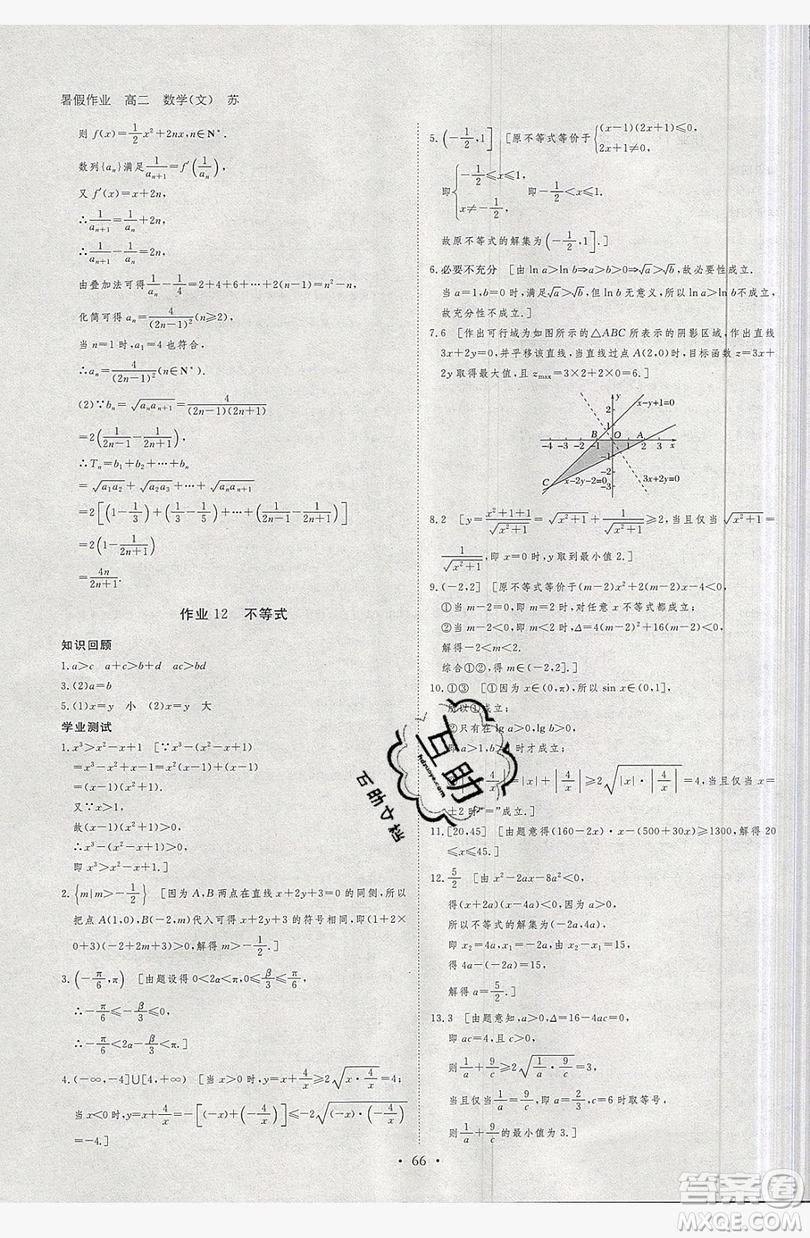 暑假作业 高二 数学(文) 苏
则 f(x)=1/2 x²+2nx,n∈N*.
数列{aₙ}满足 1/aₙ₊₁=f′(1/aₙ),
又 f′(x)=x+2n,
∴1/aₙ₊₁=1/aₙ+2n,
∴1/aₙ₊₁−1/aₙ=2n,
由叠加法可得 1/aₙ−1/4=2+4+6+…+2(n−1)=n²−n,
化简可得 aₙ=4/(2n−1)²(n≥2),
当 n=1 时,a₁=4 也符合,
∴aₙ=4/(2n−1)²(n∈N*).
(2)∵bₙ=√(aₙaₙ₊₁)=4/((2n−1)(2n+1))
=2(1/(2n−1)−1/(2n+1)),
∴Tₙ=b₁+b₂+…+bₙ
=√(a₁a₂)+√(a₂a₃)+…+√(aₙaₙ₊₁)
=2[(1−1/3)+(1/3−1/5)+…+(1/(2n−1)−1/(2n+1))]
=2(1−1/(2n+1))
=4n/(2n+1).
作业 12 不等式
知识回顾
1.a>c a+c>b+d ac>bd
3.(2)a=b
5.(1)x=y 小 (2)x=y 大
学业测试
1.x³>x²−x+1 [x³−(x²−x+1)
=x³−x²+x−1=x²(x−1)+(x−1)
=(x−1)(x²+1).
又∵x>1,
故(x−1)(x²+1)>0,
∴x³−(x²−x+1)>0,
即x³>x²−x+1.]
2.{m|m>−1/2} [因为 A,B 两点在直线 x+2y+3=0 的同侧,所以
把点 A(1,0),B(−2,m)代入可得 x+2y+3 的符号相同,即(1+2×
0+3)(−2+2m+3)>0,解得 m>−1/2.]
3.(−π/6,π) [由题设得 0<2α<π,0≤β/3≤π/6,
∴−π/6≤−β/3≤0,
∴−π/6<2α−β/3<π.]
4.(−∞,−4]∪[4,+∞) [当 x>0 时,x+4/x≥2√(x·4/x)=4;
当 x<0 时,x+4/x=−[(−x)+(−4/x)]≤−2√((−x)·(−4/x))
=−4.]
5.(−1/2,1] [原不等式等价于{(x−1)(2x+1)≤0,
2x+1≠0,
即{−1/2≤x≤1,
x≠−1/2,即−1/2<x≤1.
故原不等式的解集为(−1/2,1].]
6.必要不充分 [由 ln a>ln b⇒a>b>0⇒√a>√b,故必要性成立.
当 a=1,b=0 时,满足√a>√b,但 ln b 无意义,所以 ln a>ln b 不成立,
故充分性不成立.]
7.6 [作出可行域为如图所示的△ABC 所表示的阴影区域,作出直线
3x+2y=0,并平移该直线,当直线过点 A(2,0)时,目标函数 z=3x+
2y 取得最大值,且 zₘₐₓ=3×2+2×0=6.]
y
x−y+1=0
2
1
B O A
−4 −3 −2 −1 1 2 3 4 x
−1
−2
−3
C
x−2y−2=0
8.2 [y=(x²+1+1)/√(x²+1)=√(x²+1)+1/√(x²+1)≥2,当且仅当√(x²+1)=
1/√(x²+1),即 x=0 时,y 取到最小值 2.]
9.(−2,2] [原不等式等价于(m−2)x²+2(m−2)x−4<0,
①当 m−2=0,即 m=2 时,对任意 x 不等式都成立;
②当 m−2<0,即 m<2 时,Δ=4(m−2)²+16(m−2)<0,
解得−2<m<2.
综合①②,得 m∈(−2,2].]
10.①③ [①因为 x∈(0,π),所以 sin x∈(0,1],
所以①成立;
②只有在 lg a>0,lg b>0,
即 a>1,b>1 时才成立;
③|x+4/x|=|x|+|4/x|≥2√(|x|·|4/x|)=4,当且仅当 x=
±2 时“=”成立.]
11.[20,45] [由题意得(160−2x)·x−(500+30x)≥1300,解得 20
≤x≤45.]
12.5/2 [由 x²−2ax−8a²<0,
得(x+2a)(x−4a)<0,因为 a>0,
所以不等式的解集为(−2a,4a),
即 x₂=4a,x₁=−2a,由 x₂−x₁=15,
得 4a−(−2a)=15,
解得 a=5/2.]
13.3 [由题意知,a>0,Δ=16−4ac=0,
即 ac=4,c>0,
则 1/a+9/c≥2√(1/a·9/c)=3,
当且仅当 1/a=9/c 时取等号,
则 1/a+9/c 的最小值为 3.]
· 66 ·
互助
hdzuoye.com
百助文档
答案圈
MXQE.COM